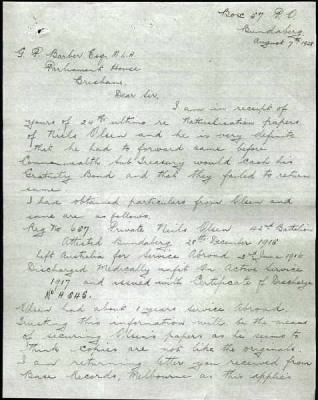 Box 37 P.O.
Bundaberg
August 7th 1928
G. P. Barber Esq. M.L.A
Parliament House
Brisbane.
Dear Sir,
I am in receipt of
yours of 24th ultimo re Naturalisation papers
of Niels Olsen and he is very definite
that he had to forward same before
Commonwealth Sub Treasury would cash his
Gratuity Bond and that they failed to return
same.
I have obtained particulars from Olsen and
same are as follows.
Reg No 637 Private Neils Olsen 42nd Battalion
Attested Bundaberg 28th December 1915
Left Australia for Service Abroad 5th June 1916
Discharged Medically unfit for Active Service
1917 and issued with Certificate of Discharge
No
Olsen had about 1 years Service Abroad.
Trusting this information will be the means
of securing Olsen's papers as he seems to
think copies are not like the originals.
I am returning letter you received from
Base Records, Melbourne as this applies